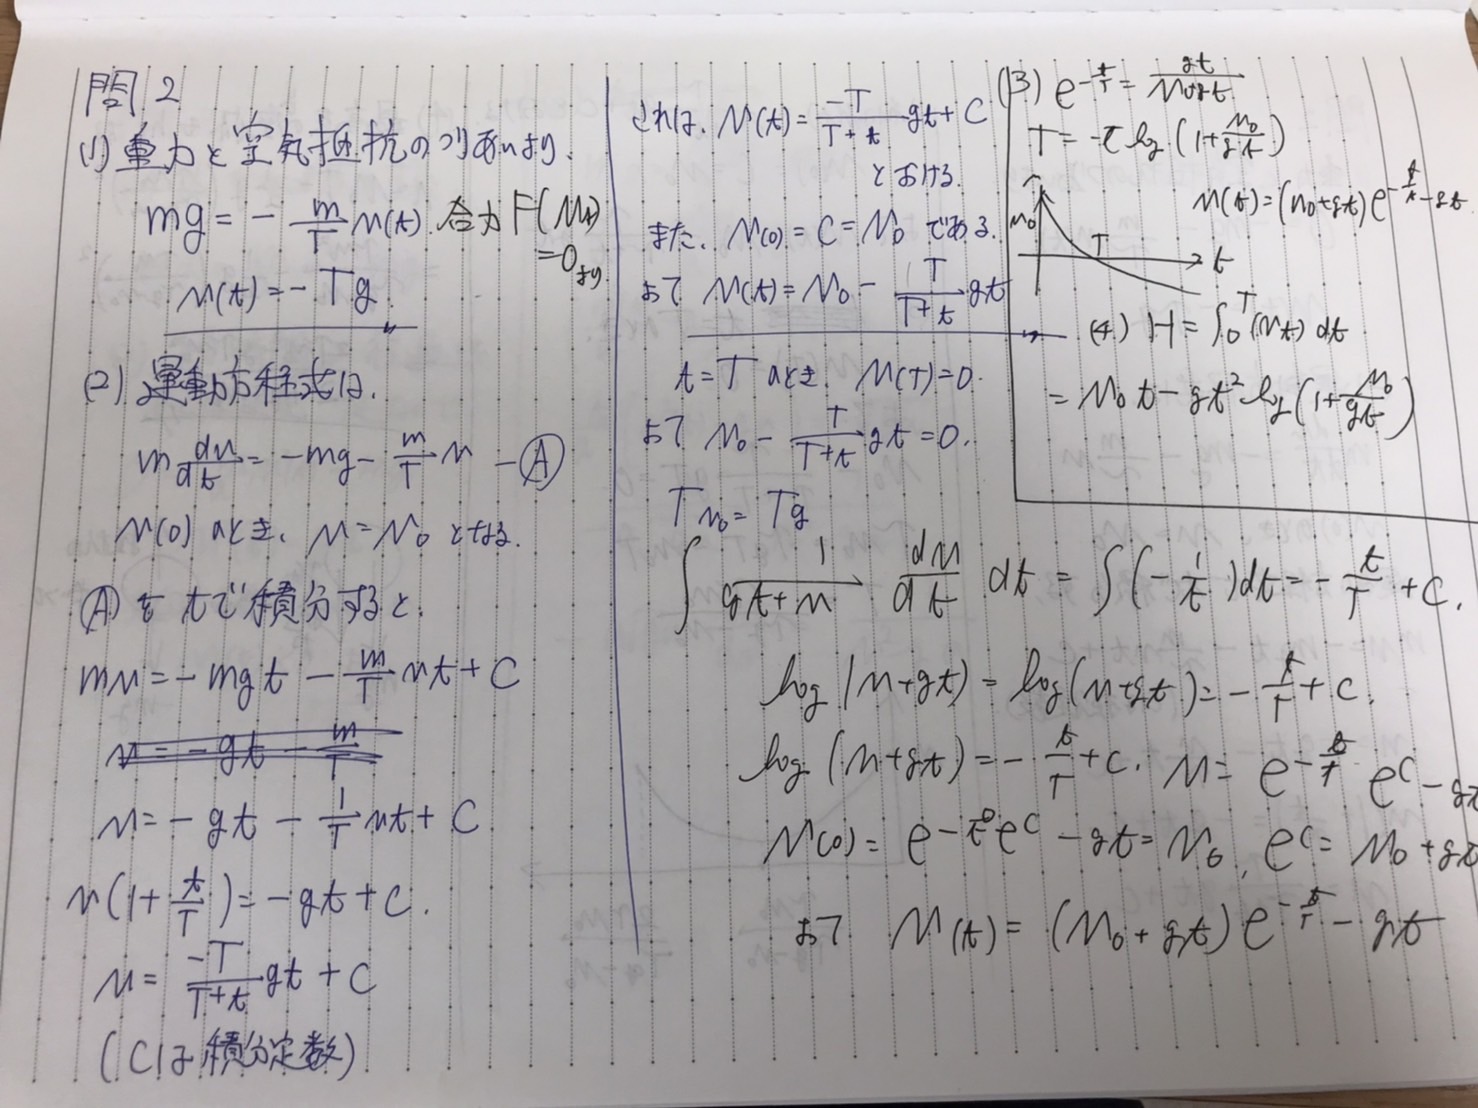 問2
(1) 重力と空気抵抗のつりあいより、
mg = - m/T u(t) 合力 F(u(t)) = 0より
u(t) = - Tg
(2) 運動方程式は、
m du/dt = -mg - m/T u - Ⓐ
u(0) のとき、u = u₀ となる。
Ⓐを tで積分すると、
mu = -mgt - m/T ut + C
u = -gt - m/T
u = -gt - 1/T ut + C
u(1 + t/T) = -gt + C.
u = -T/(T+t) gt + C
(Cは積分定数)
これは、u(t) = -T/(T+t) gt + C
とおける.
また、u(0) = C = u₀ である.
よて u(t) = u₀ - T/(T+t) gt
t = T のとき、u(T) = 0.
よて u₀ - T/(T+t) gt = 0.
T u₀ = Tg
∫ 1/(gt+u) du/dt dt = ∫(-1/t)dt = - t/T + C.
log|u+gt) = log(u+gt) = - t/T + C.
log(u+gt) = - t/T + C. u = e^{-t/T} e^C - gt
u(0) = e^{-0/t} e^C - gt = u₀, e^C = u₀ + gt
よて u(t) = (u₀ + gt) e^{-t/T} - gt
(3) e^{-t/T} = gt/(u₀+gt)
T = -τ log(1 + u₀/gt)
u(t) = (u₀+gt) e^{-t/t} - gt
u₀ T t
(4) H = ∫₀^T (u(t) dt
= u₀t - gt² log(1 + u₀/gt)